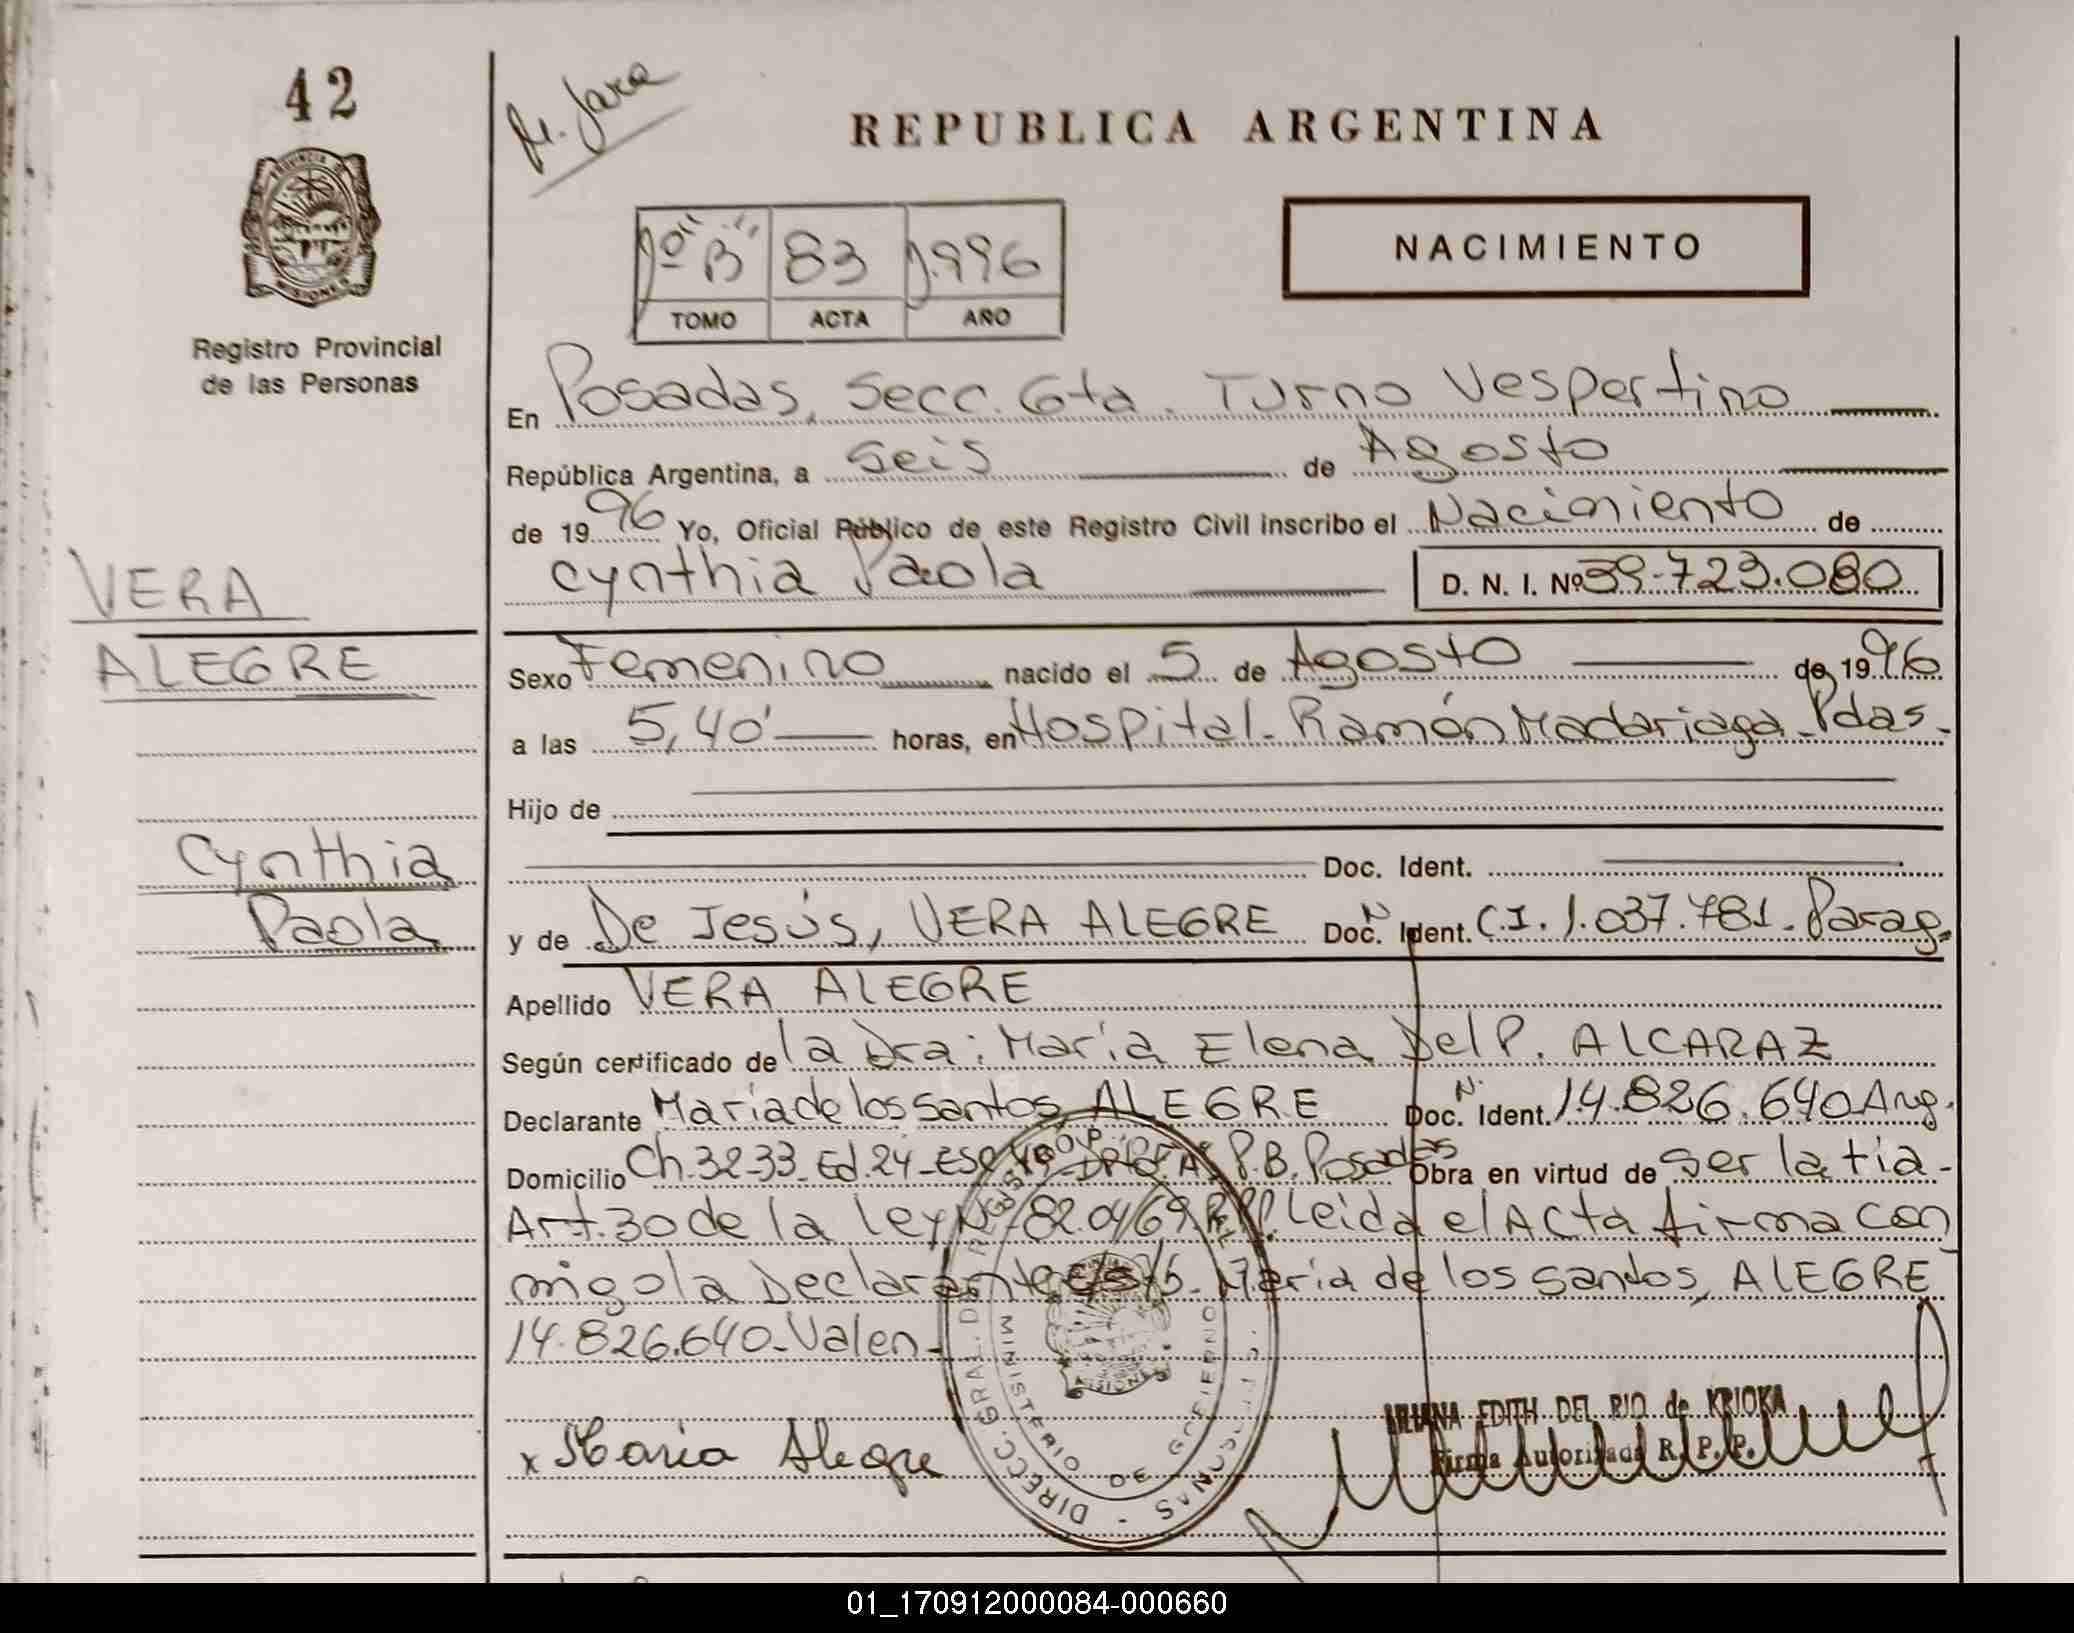 42
PROVINCIA DE
MISIONES
Registro Provincial
de las Personas
VERA
ALEGRE
Cynthia
Paola
M. Jara
REPUBLICA ARGENTINA
1º "B" 83 1.996
TOMO ACTA AÑO
NACIMIENTO
En Posadas, Secc. 6ta. Turno Vespertino
República Argentina, a seis de Agosto
de 1996 Yo, Oficial Público de este Registro Civil inscribo el Nacimiento de
Cynthia Paola D. N. I. Nº 39.723.080
Sexo Femenino nacido el 5 de Agosto de 1996
a las 5,40' horas, en Hospital - Ramón Madariaga - Pdas -
Hijo de
Doc. Ident.
y de De Jesús, VERA ALEGRE Doc. Nº Ident. C.I. 1.037.781 - Parag.
Apellido VERA ALEGRE
Según certificado de la Dra: María Elena Del P. ALCARAZ
Declarante María de los santos, ALEGRE Doc. Nº Ident. 14.826.640 Arg.
Domicilio Ch. 32-33 - Ed. 24 - P.B. Posadas Obra en virtud de ser la tía -
Art. 30 de la ley Nº 82.04/69. Leida el Acta firma con
migo la Declarante María de los santos, ALEGRE
14.826.640 - Valen -
x Maria Alegre
LILIANA EDITH DEL RIO de KRIOKA
Firma Autorizada R. P. P.
DIRECC. GRAL. DEL REGISTRO PROV. DE LAS PERSONAS -
MINISTERIO DE GOBIERNO
MISIONES
01_170912000084-000660